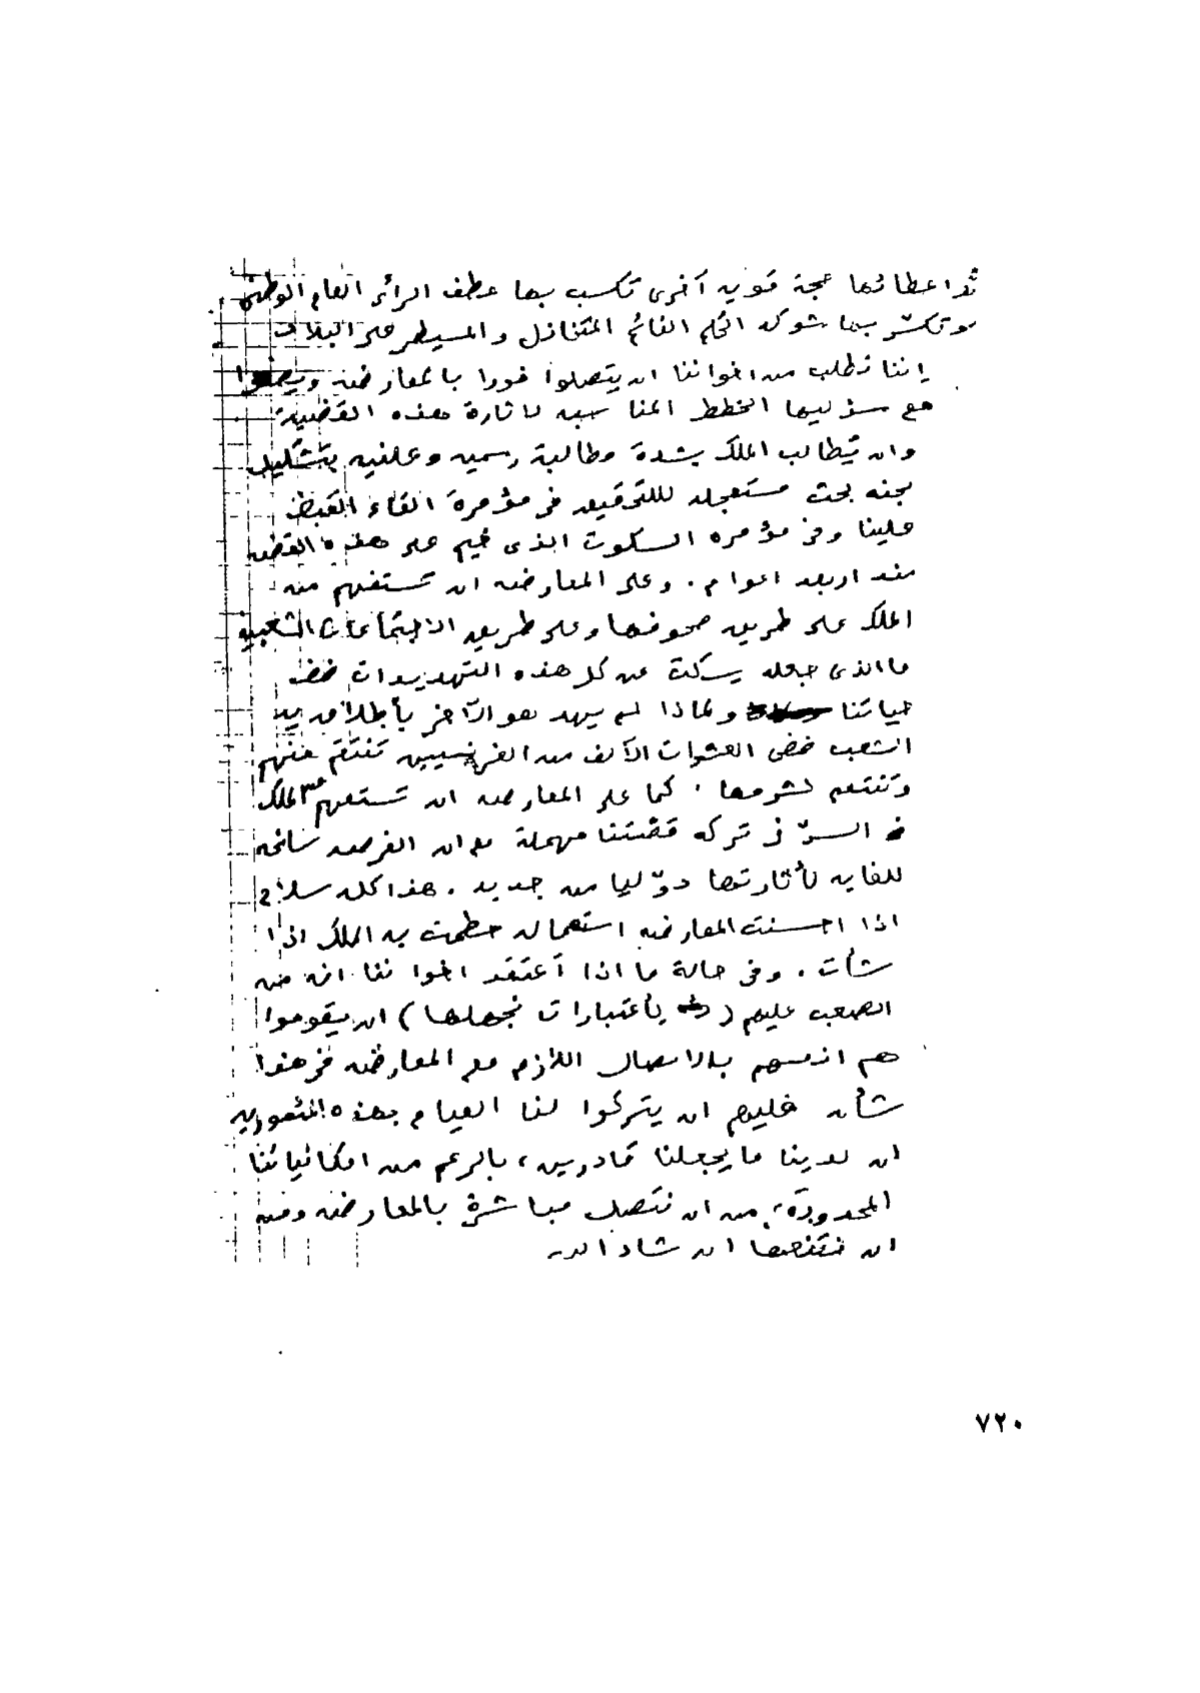 اعطائها حجة قوية أخرى تكسب بها عطف الرأي العام الوطني
وتكسّر بها شوكة الحكم القائم المتخاذل والمسيطر على البلاد
إننا نطلب من اخواننا ان يتصلوا فورا بالمعارضة
مع مسؤليها الخطط المناسبة لاثارة هذه القضية
وان تطالب الملك بشدة مطالبة رسمية وعلنية بتشكيل
لجنة بحث مستعجلة للتحقيق في مؤمرة القاء القبض
علينا وفي مؤمرة السكوت الذي خيم على هذه القضية
منذ اربعة اعوام . وعلى المعارضة ان تستفهم من
الملك على طريق صحوفها وعلى طريق الاجتماعات الشعبية
ما الذي جعله يسكت عن كل هذه التهديدات ضد
حياتنا ولماذا لم يهدد هو الآخر بأطلاق يد
الشعب ضد العشرات الآلف من الفرنسيين تنتقم منهم
وتنتقم لشرفها . كما على المعارضة ان تستفهم الملك
السرّ في تركه قضيتنا مهملة مع ان الفرصة سانحة
للغاية لأثارتها دوّليا من جديد . هذا كله سلاح
اذا احسنت المعارضة استعماله حطمت به الملك اذا
شأت . وفي حالة ما اذا أعتقد اخواننا انه من
الصعب عليهم ( لأعتبارات نجهلها ) ان يقوموا
هم انفسهم بالاتصال اللازم مع المعارضة في هذا
شأن فليهم ان يتركوا لنا القيام بهذه المأمورية
ان لدينا ما يجعلنا قادرين ، بالرغم من امكانياتنا
المحدودة ، من ان نتصل مباشرة بالمعارضة ومن
ان ان شاء الله
٧٢٠